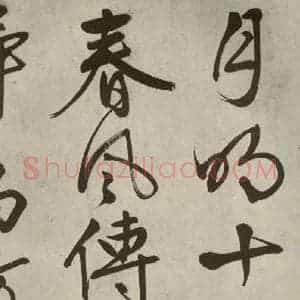 月明十
春風傳
ShufaziliaoCOM